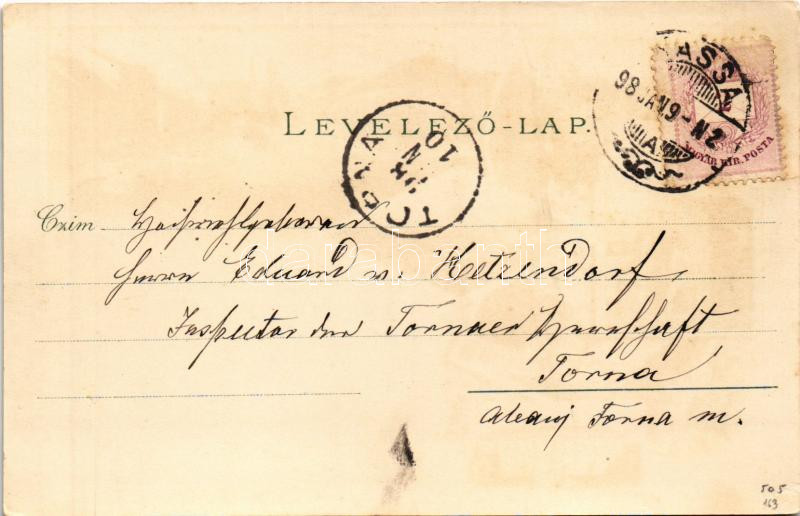 KASSA
98 JAN 9 - N2
MAGYAR KIR. POSTA
LEVELEZŐ-LAP.
TORNA
10
Czim Hochwohlgeboren
Herrn Eduard v. Hetzendorf,
Inspector der Tornaer Herrschaft
Torna
Abauj Torna m.
darabanth
505
163